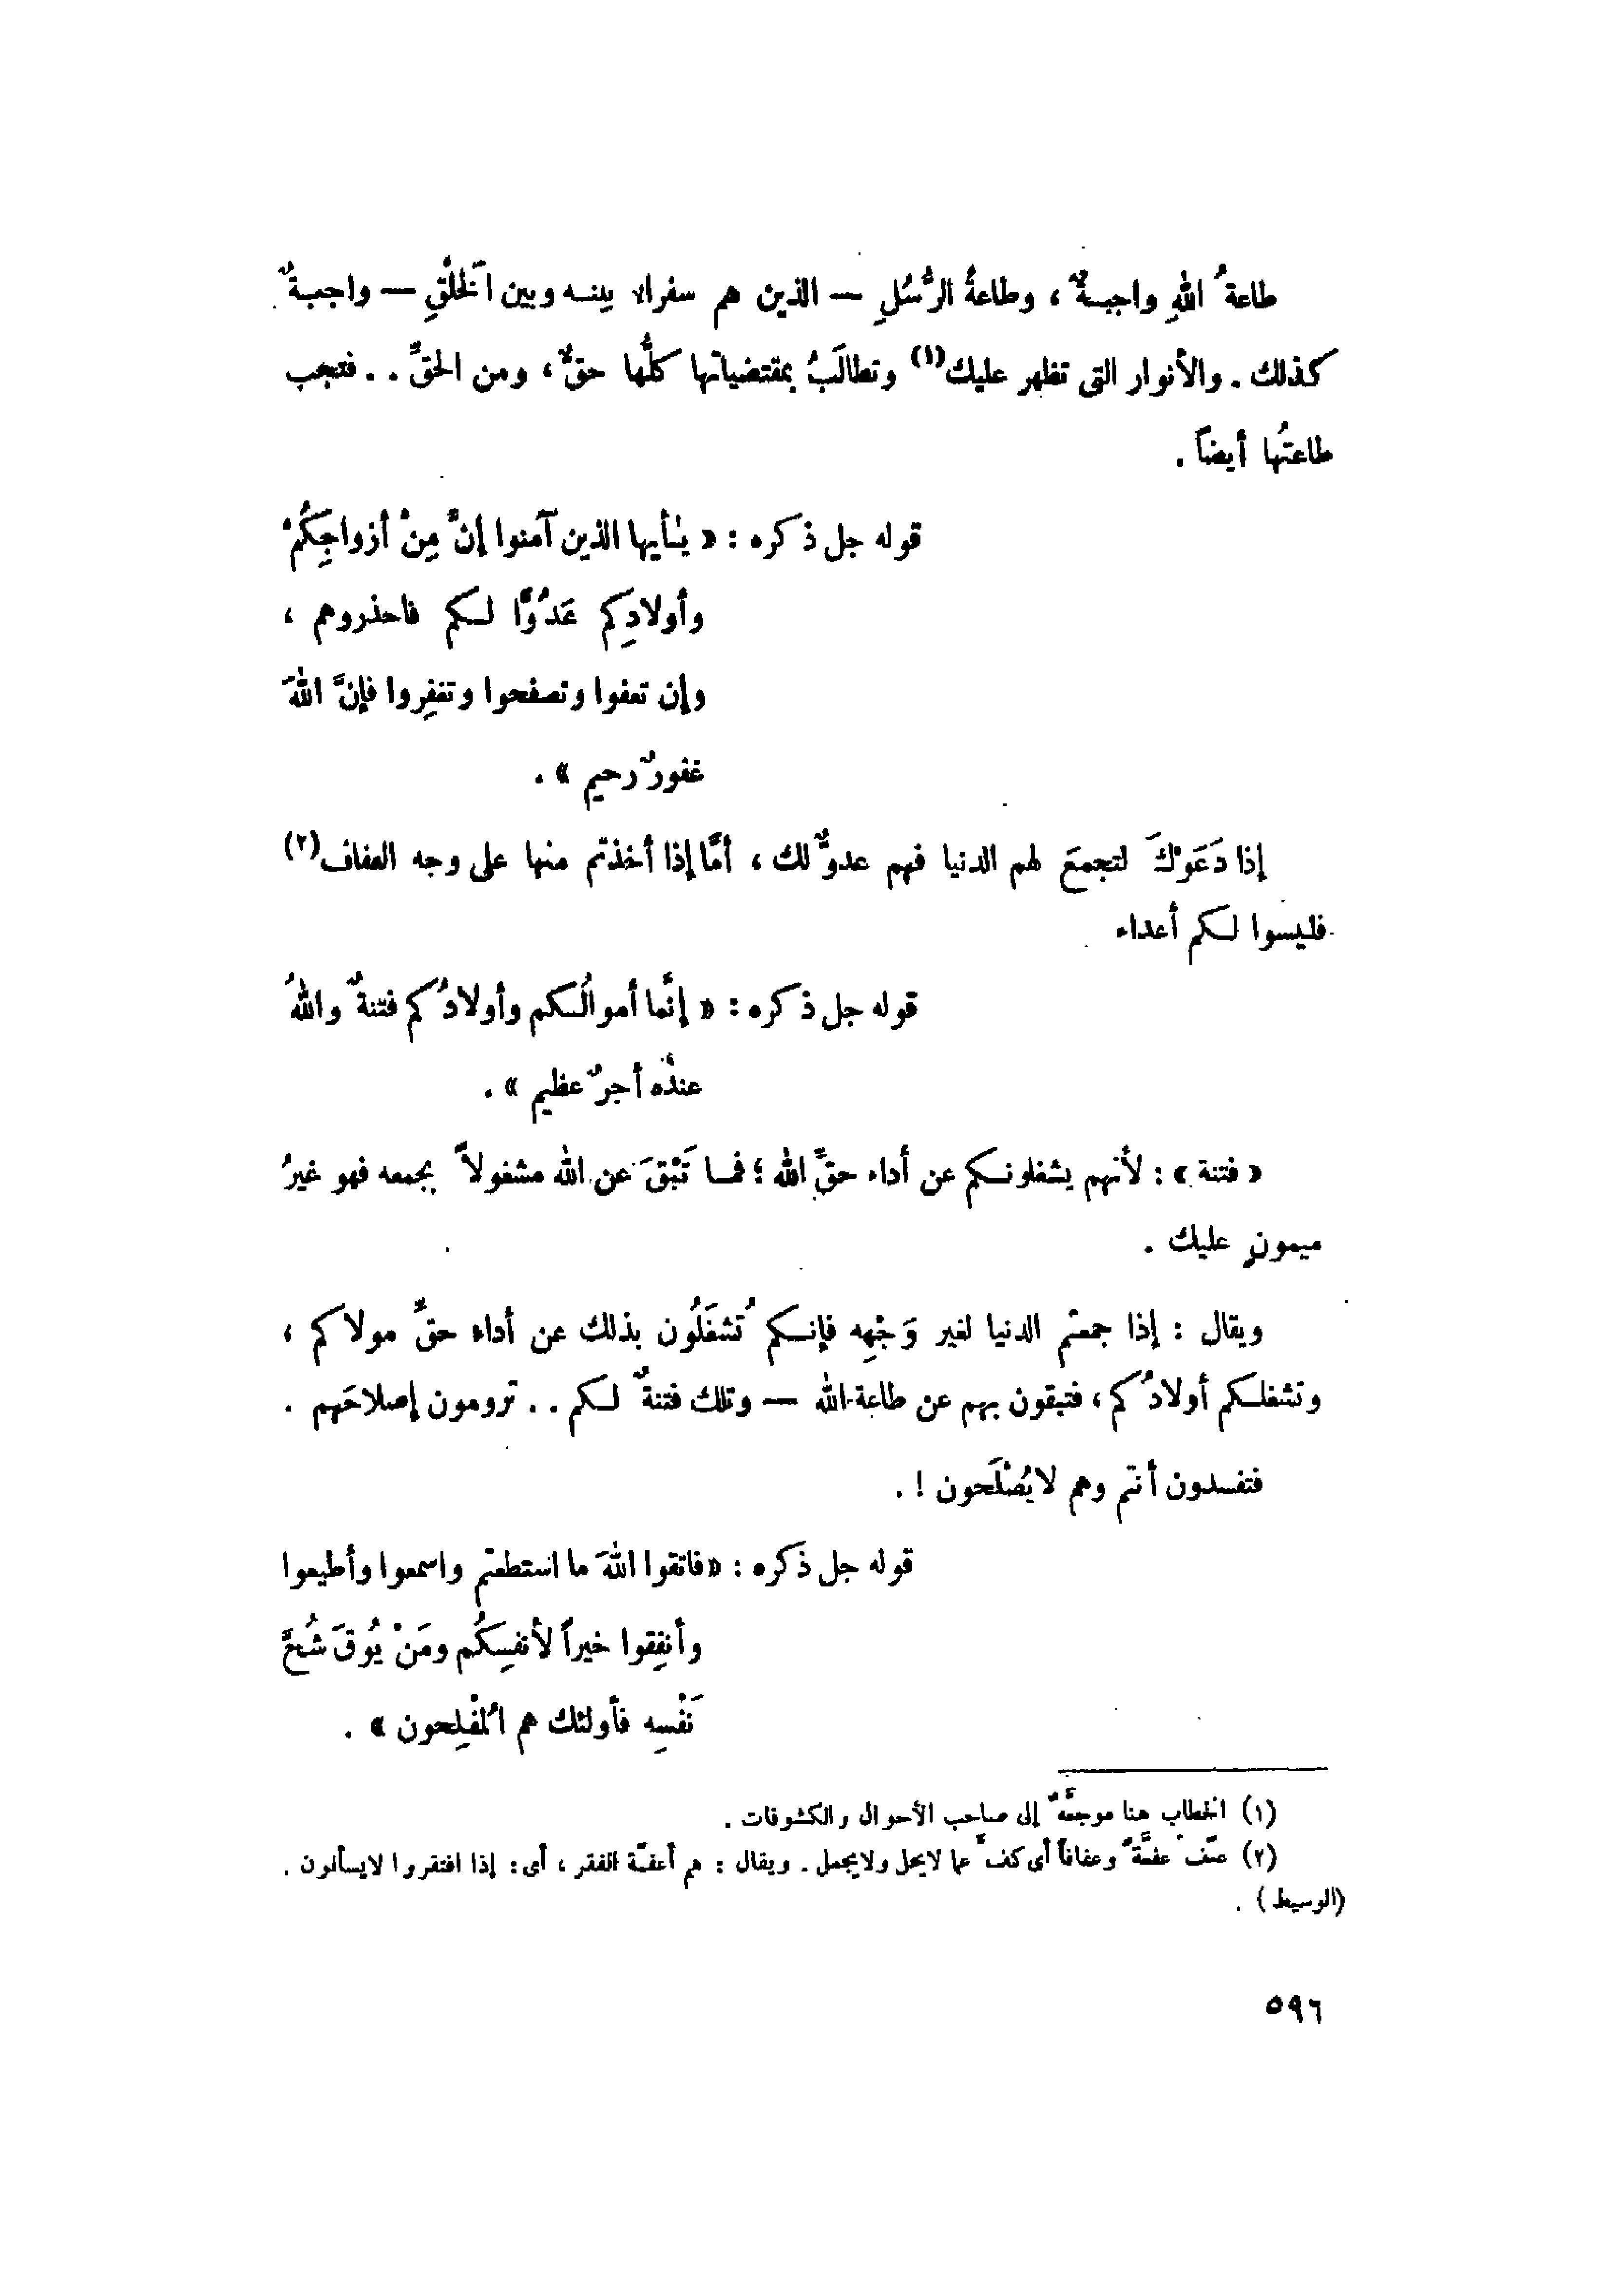 طاعةُ اللهِ واجبةٌ ، وطاعةُ الرُّسُلِ — الذين هم سفراء بينه وبين الخَلْقِ — واجبةٌ
كذلك . والأنوار التى تظهر عليك(١) وتطالَبُ بمقتضياتها كلُّها حقٌّ ، ومن الحقِّ . . فتجب
طاعتُها أيضاً .
قوله جل ذكره : « يٰأيها الذين آمنوا إنَّ مِنْ أزواجِكُمْ
وأولادِكم عَدُوًّا لكم فاحذروهم ،
وإن تعفوا وتصفحوا وتغفِروا فإنَّ اللهَ
غفورٌ رحيم » .
إذا دَعَوْكَ لتجمعَ لهم الدنيا فهم عدوٌّ لك ، أمَّا إذا أخذتم منها على وجه العفاف(٢)
فليسوا لكم أعداء
قوله جل ذكره : « إنَّما أموالُكم وأولادُكم فتنةٌ واللهُ
عندَه أجرٌ عظيم » .
« فتنة » : لأنهم يشغلونكم عن أداء حقِّ الله ؛ فما تَبْقَ عن الله مشغولاً بجمعه فهو غيرُ
ميمونٍ عليك .
ويقال : إذا جمعتم الدنيا لغير وَجْهِه فإنكم تُشغَلُون بذلك عن أداء حقِّ مولاكم ،
وتشغلكم أولادُكم ، فتبقون بهم عن طاعة الله — وتلك فتنةٌ لكم . . ترومون إصلاحَهم .
فتفسدون أنتم وهم لا يُصْلَحون ! .
قوله جل ذكره : « فاتقوا اللهَ ما استطعتم واسمعوا وأطيعوا
وأنفِقوا خيراً لأنفسِكُم ومَنْ يُوقَ شُحَّ
نَفْسِه فأولئك هم المُفْلِحون » .
(١) الخطاب هنا موجَّهٌ إلى صاحب الأحوال والكشوفات .
(٢) عفّ عفَّةً وعفافاً أى كفّ عما لا يحل ولا يجمل . ويقال : هم أعفّة الفقر ، أى : إذا افتقروا لا يسألون .
(الوسيط) .
٥٩٦